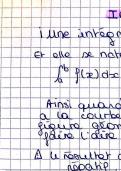 I
1 une intégr
Et elle se not
∫ᵇₐ f(x)dx
Ainsi quand
a la courbe
figure géom
faire l'aire
Δ le résultat
négatif